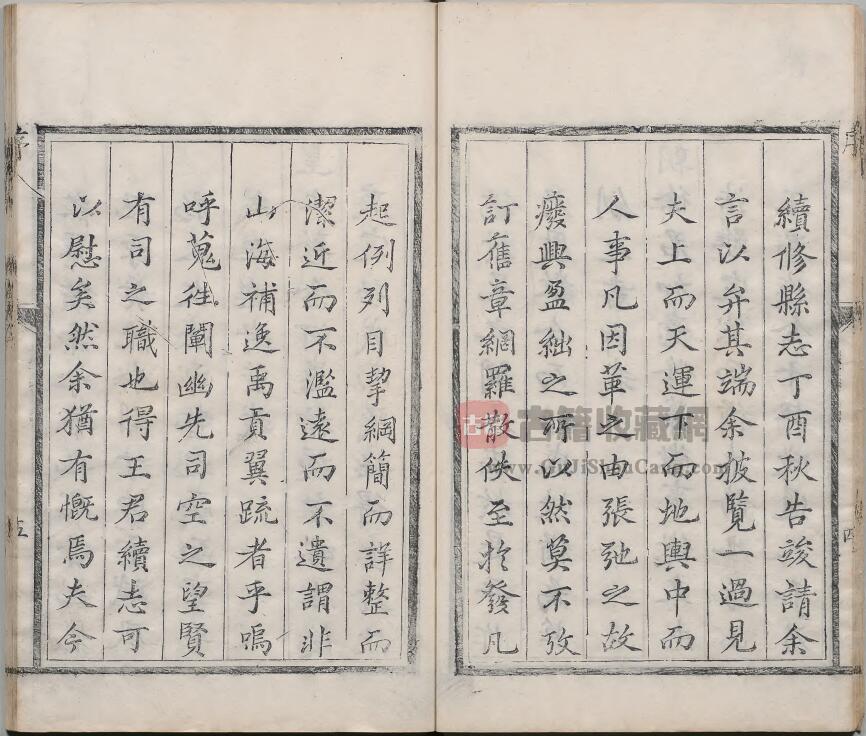 續修縣志丁酉秋告竣請余
言以弁其端余披覽一過見
夫上而天運下而地輿中而
人事凡因革之由張弛之故
廢興盈絀之所以然莫不攷
訂舊章網羅散佚至於發凡
起例列目挈綱簡而詳整而
潔近而不濫遠而不遺謂非
山海補逸禹貢翼疏者乎嗚
呼蒐往闡幽先司空之望賢
有司之職也得王君續志可
以慰矣然余猶有慨焉夫今
序
四
序
五
古籍收藏網
www.GuJiShouCang.com